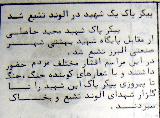 پیکر پاک یک شهید در الوند تشیع شد
پیکر پاک شهید محمد حاصلی
از مقابل پایگاه شهید بهشتی شهر
صنعتی البرز تشیع شد.
در این مراسم اقشار مختلف مردم حضور
داشتند و با شعارهای کوبنده جنگ، جنگ
تا پیروزی پیکر پاک این شهید را تا
گلزار شهدای الوند تشیع و بخاک
سپردند.